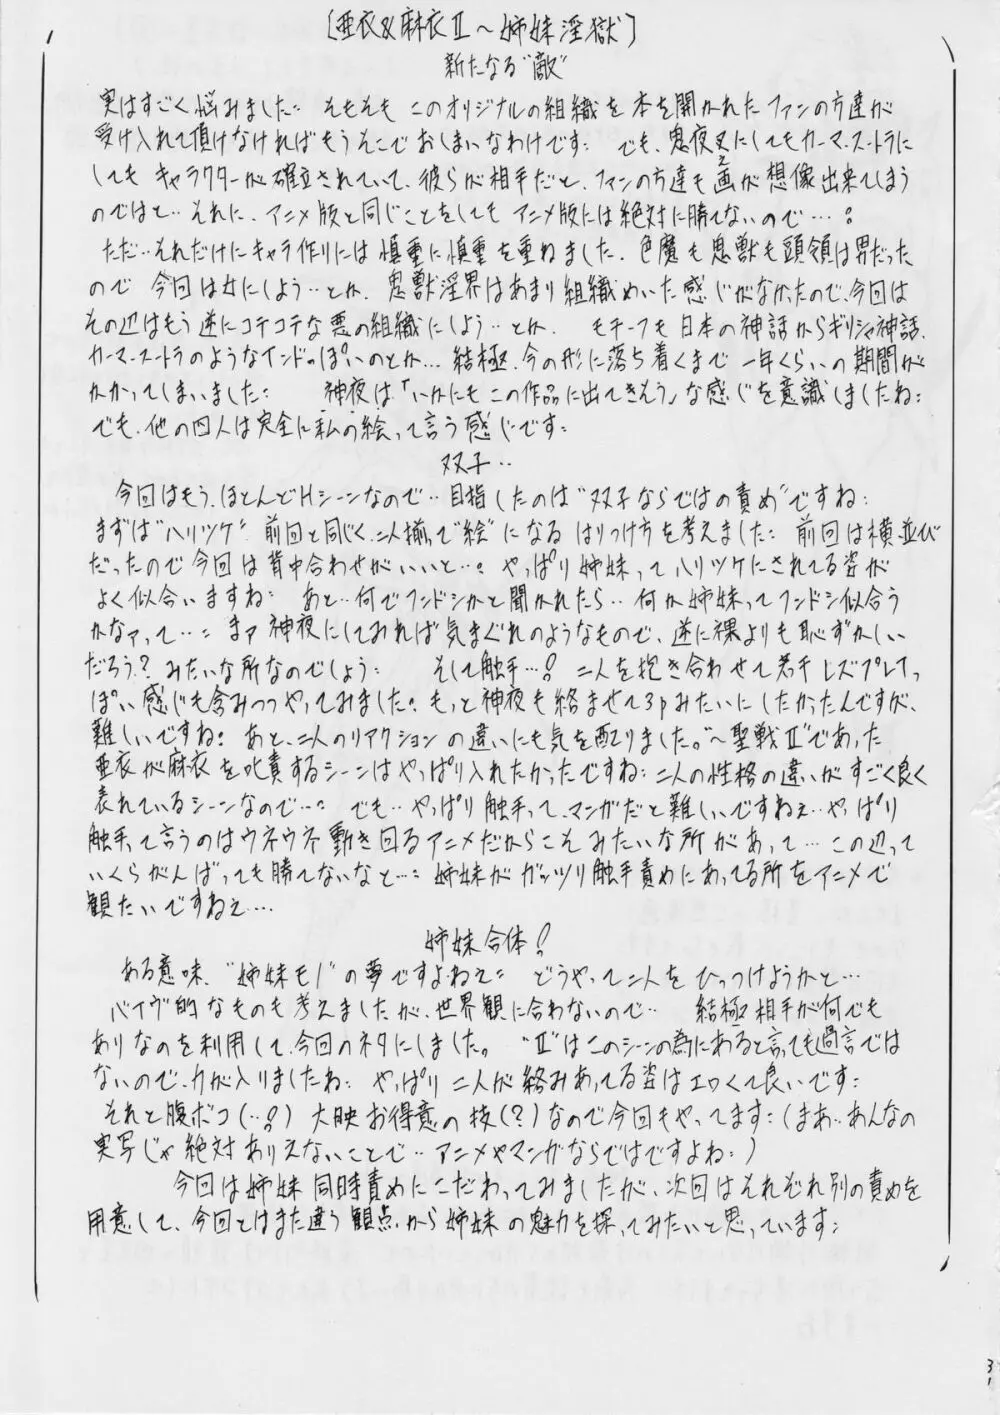 [亜衣&麻衣Ⅱ～姉妹淫獄]
新たなる"敵"
実はすごく悩みました‥ そもそも このオリジナルの組織を 本を開かれた ファンの方達が
受け入れて頂けなければもうそこで おしまいなわけです‥ でも、鬼夜叉にしてもカーマ・スートラに
しても キャラクターが確立されていて、彼らが相手だと、ファンの方達も画が想像出来てしまう
のではと‥それに、アニメ版と同じことをしても アニメ版には絶対に勝てないので…。
ただ‥それだけにキャラ作りには 慎重に慎重を重ねました、色魔も鬼獣も頭領は男だった
ので 今回は女にしよう‥とか、鬼獣淫界はあまり組織めいた感じがなかったので、今回は
その辺はもう逆にコテコテな悪の組織にしよう‥とか、 モチーフも日本の神話からギリシャ神話、
カーマ・スートラのようなインドっぽいのとか… 結極、今の形に落ち着くまで 一年くらいの期間が
かかってしまいました‥ 神夜は「いかにもこの作品に出てきそう」な感じを意識しましたね‥
でも、他の四人は完全に私の絵って言う感じです‥
双子‥
今回はもう、ほとんどHシーンなので‥目指したのは"双子ならではの責め"ですね‥
まずは"ハリツケ" 前回と同じく、二人揃って"絵"になる はりつけ方を考えました‥ 前回は横並び
だったので今回は背中合わせがいいと…。やっぱり姉妹ってハリツケにされてる姿が
よく似合いますね‥ あと‥何でフンドシかと聞かれたら‥何か姉妹ってフンドシ似合う
かなァって…‥ まァ神夜にしてみれば気まぐれのようなもので、逆に裸よりも恥ずかしい
だろう? みたいな所なのでしょう‥ そして触手…! 二人を抱き合わせて若干レズプレイっ
ぽい感じも含みつつやってみました。もっと神夜も絡ませて3pみたいにしたかったんですが、
難しいですね。あと、二人のリアクションの違いにも気を配りました。"～聖戦Ⅱ"であった
亜衣が麻衣を叱責するシーンはやっぱり入れたかったですね‥二人の性格の違いがすごく良く
表れているシーンなので…‥ でも‥やっぱり触手って、マンガだと難しいですねぇ…やっぱり
触手って言うのはウネウネ動き回るアニメだからこそみたいな所があって…この辺って
いくらがんばっても勝てないなと…‥ 姉妹がガッツリ触手責めにあってる所をアニメで
観たいですねぇ….
姉妹合体!
ある意味、"姉妹モノ"の夢ですよねえ‥ どうやって二人をひっつけようかと…
バイヴ的なものも考えましたが、世界観に合わないので‥ 結極相手が何でも
ありなのを利用して、今回のネタにしました。"Ⅱ"はこのシーンの為にあると言っても過言では
ないので、力が入りましたね‥ やっぱり二人が絡みあってる姿はエロくて良いです‥
それと腹ボコ(‥!) 大映お得意の技(?)なので今回もやってます‥(まあ‥あんなの
実写じゃ絶対ありえないことで‥ アニメやマンガならではですよね‥)
今回は姉妹同時責めにこだわってみましたが、次回はそれぞれ別の責めを
用意して、今回とはまた違う観点から姉妹の魅力を探ってみたいと思っています‥
31